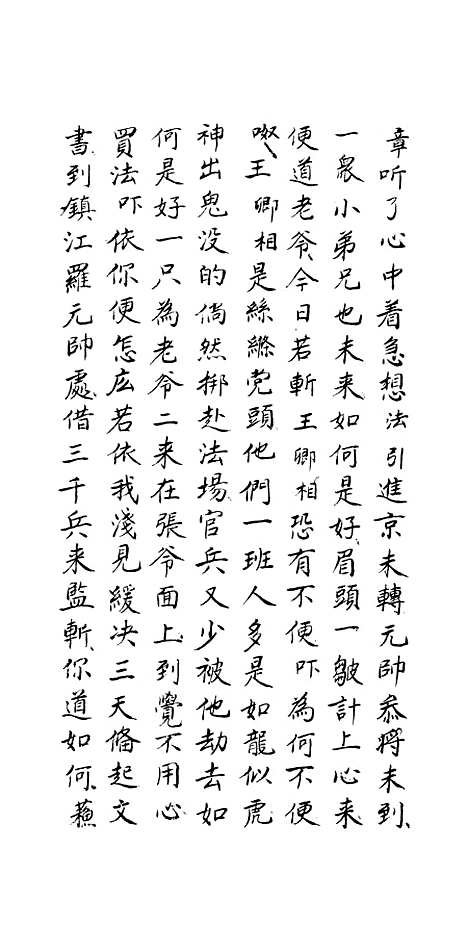 章听了心中着急想法引進京未轉元帥叅将未到、
一衆小弟兄也未来如何是好、眉頭一皺計上心来
便道老爷今日若斬王卿相恐有不便吓為何不便
呶、王卿相是絲縧党頭他們一班人多是如龍似虎
神出鬼没的倘然挷赴法場官兵又少被他劫去如
何是好一只為老爷二来在張爷面上到覺不用心
買法吓依你便怎庅若依我淺見緩决三天偹起文
書到鎮江羅元帥處借三千兵来監斬、你道如何、蘓